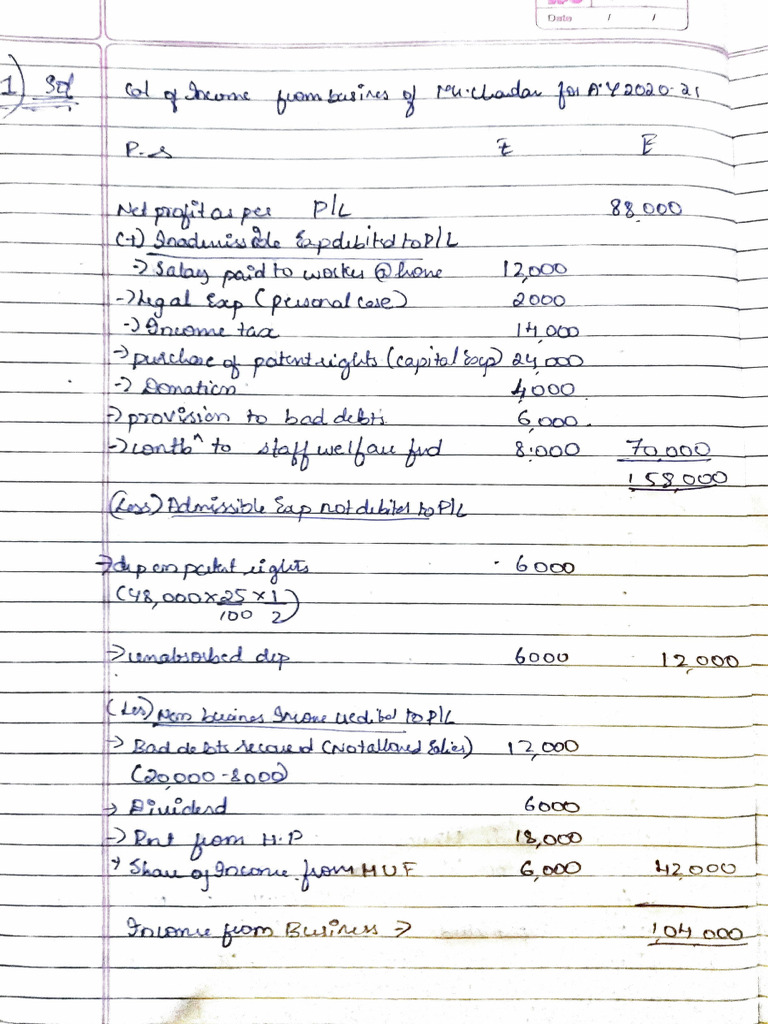 Date / /
1) Sol Cal of Income from busines of Mr. Chadan for A.Y 2020-21
P._s ₹ ₹
Net profit as per P/L 88,000
(+) Inadmissible Exp debited to P/L
-> Salary paid to worker @ home 12,000
-> Legal Exp (personal case) 2000
-> Income tax 14,000
-> purchase of patent rights (capital Exp) 24,000
-> Donation 4,000
-> provision to bad debts 6,000
-> contbn to staff welfare fud 8,000 70,000
158,000
(Less) Admissible Exp not debited to P/L
-> dep on patent rights 6000
(48,000 × 25/100 × 1/2)
-> unabsorbed dep 6000 12,000
(Les) Non busines Income credited to P/L
-> Bad debts recovered (Not allowed Earlier) 12,000
(20,000 - 8000)
-> Dividend 6000
-> Rnt from H.P 18,000
-> Share of Income from HUF 6,000 42,000
Income from Business -> 104 000